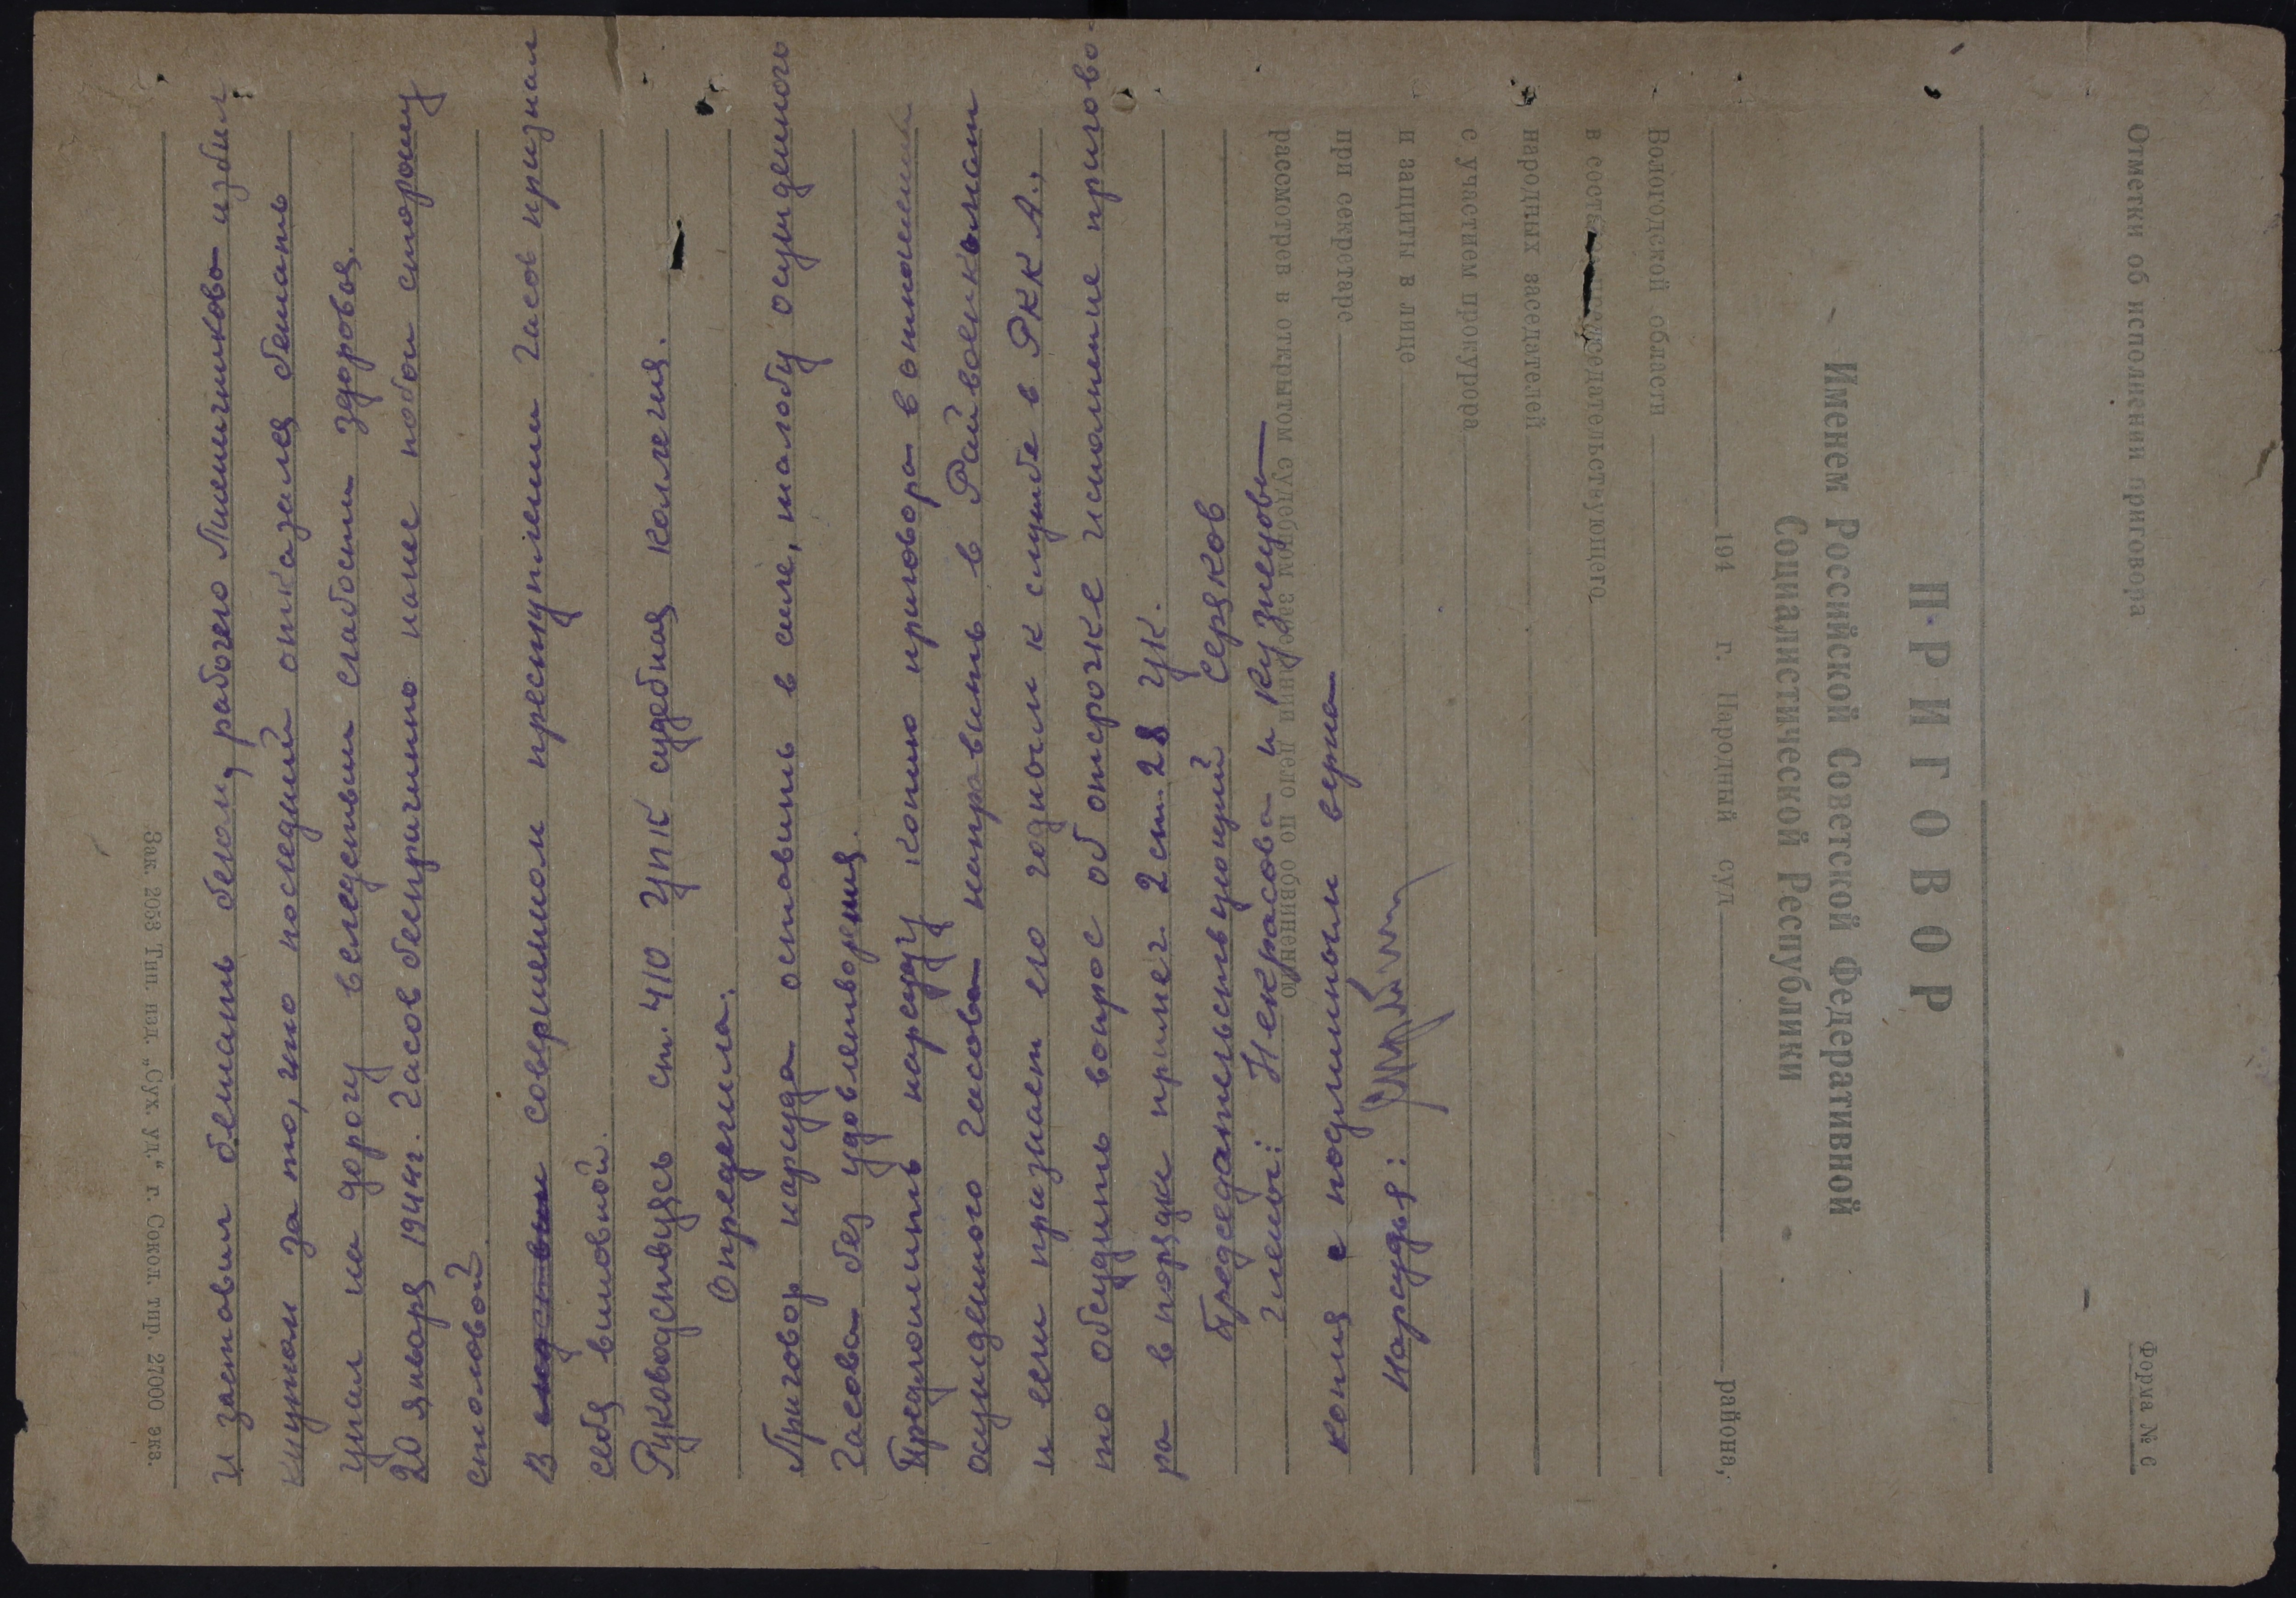 и заставил бежать бегом, рабочего Пшеничникова избил
кнутом за то, что последний отказался бежать
упал на дорогу вследствии слабости здоровья.
20 января 1944г. Часов беспричинно нанес побои сторожу
столовой.
В совершенном преступлении Часов признал
себя виновной.
Руководствуясь ст. 410 УПК судебная коллегия.
Определила:
Приговор нарсуда оставить в силе, жалобу осужденного
Часова без удовлетворения.
Предложить нарсуду копию приговора в отношении
осужденного Часова направить в Райвоенкомат
и если признает его годным к службе в РККА.,
то обсудить вопрос об отсрочке исполнение пригово-
ра в порядке примеч. 2 ст. 28 УК.
Председательствующий Серков
Члены: Некрасова и Кузнецова
копия с подлинным верна
Нарсудья:
Отметки об исполнении приговора
Форма № 6
ПРИГОВОР
Именем Российской Советской Федеративной
Социалистической Республики
194 г. Народный суд района,
Вологодской области
в составе председательствующего
народных заседателей
с участием прокурора
и защиты в лице
при секретаре
рассмотрев в открытом судебном заседании дело по обвинению
Зак. 2053 Тип. изд. „Сух. уд.“ г. Сокол. тир. 27000 экз.